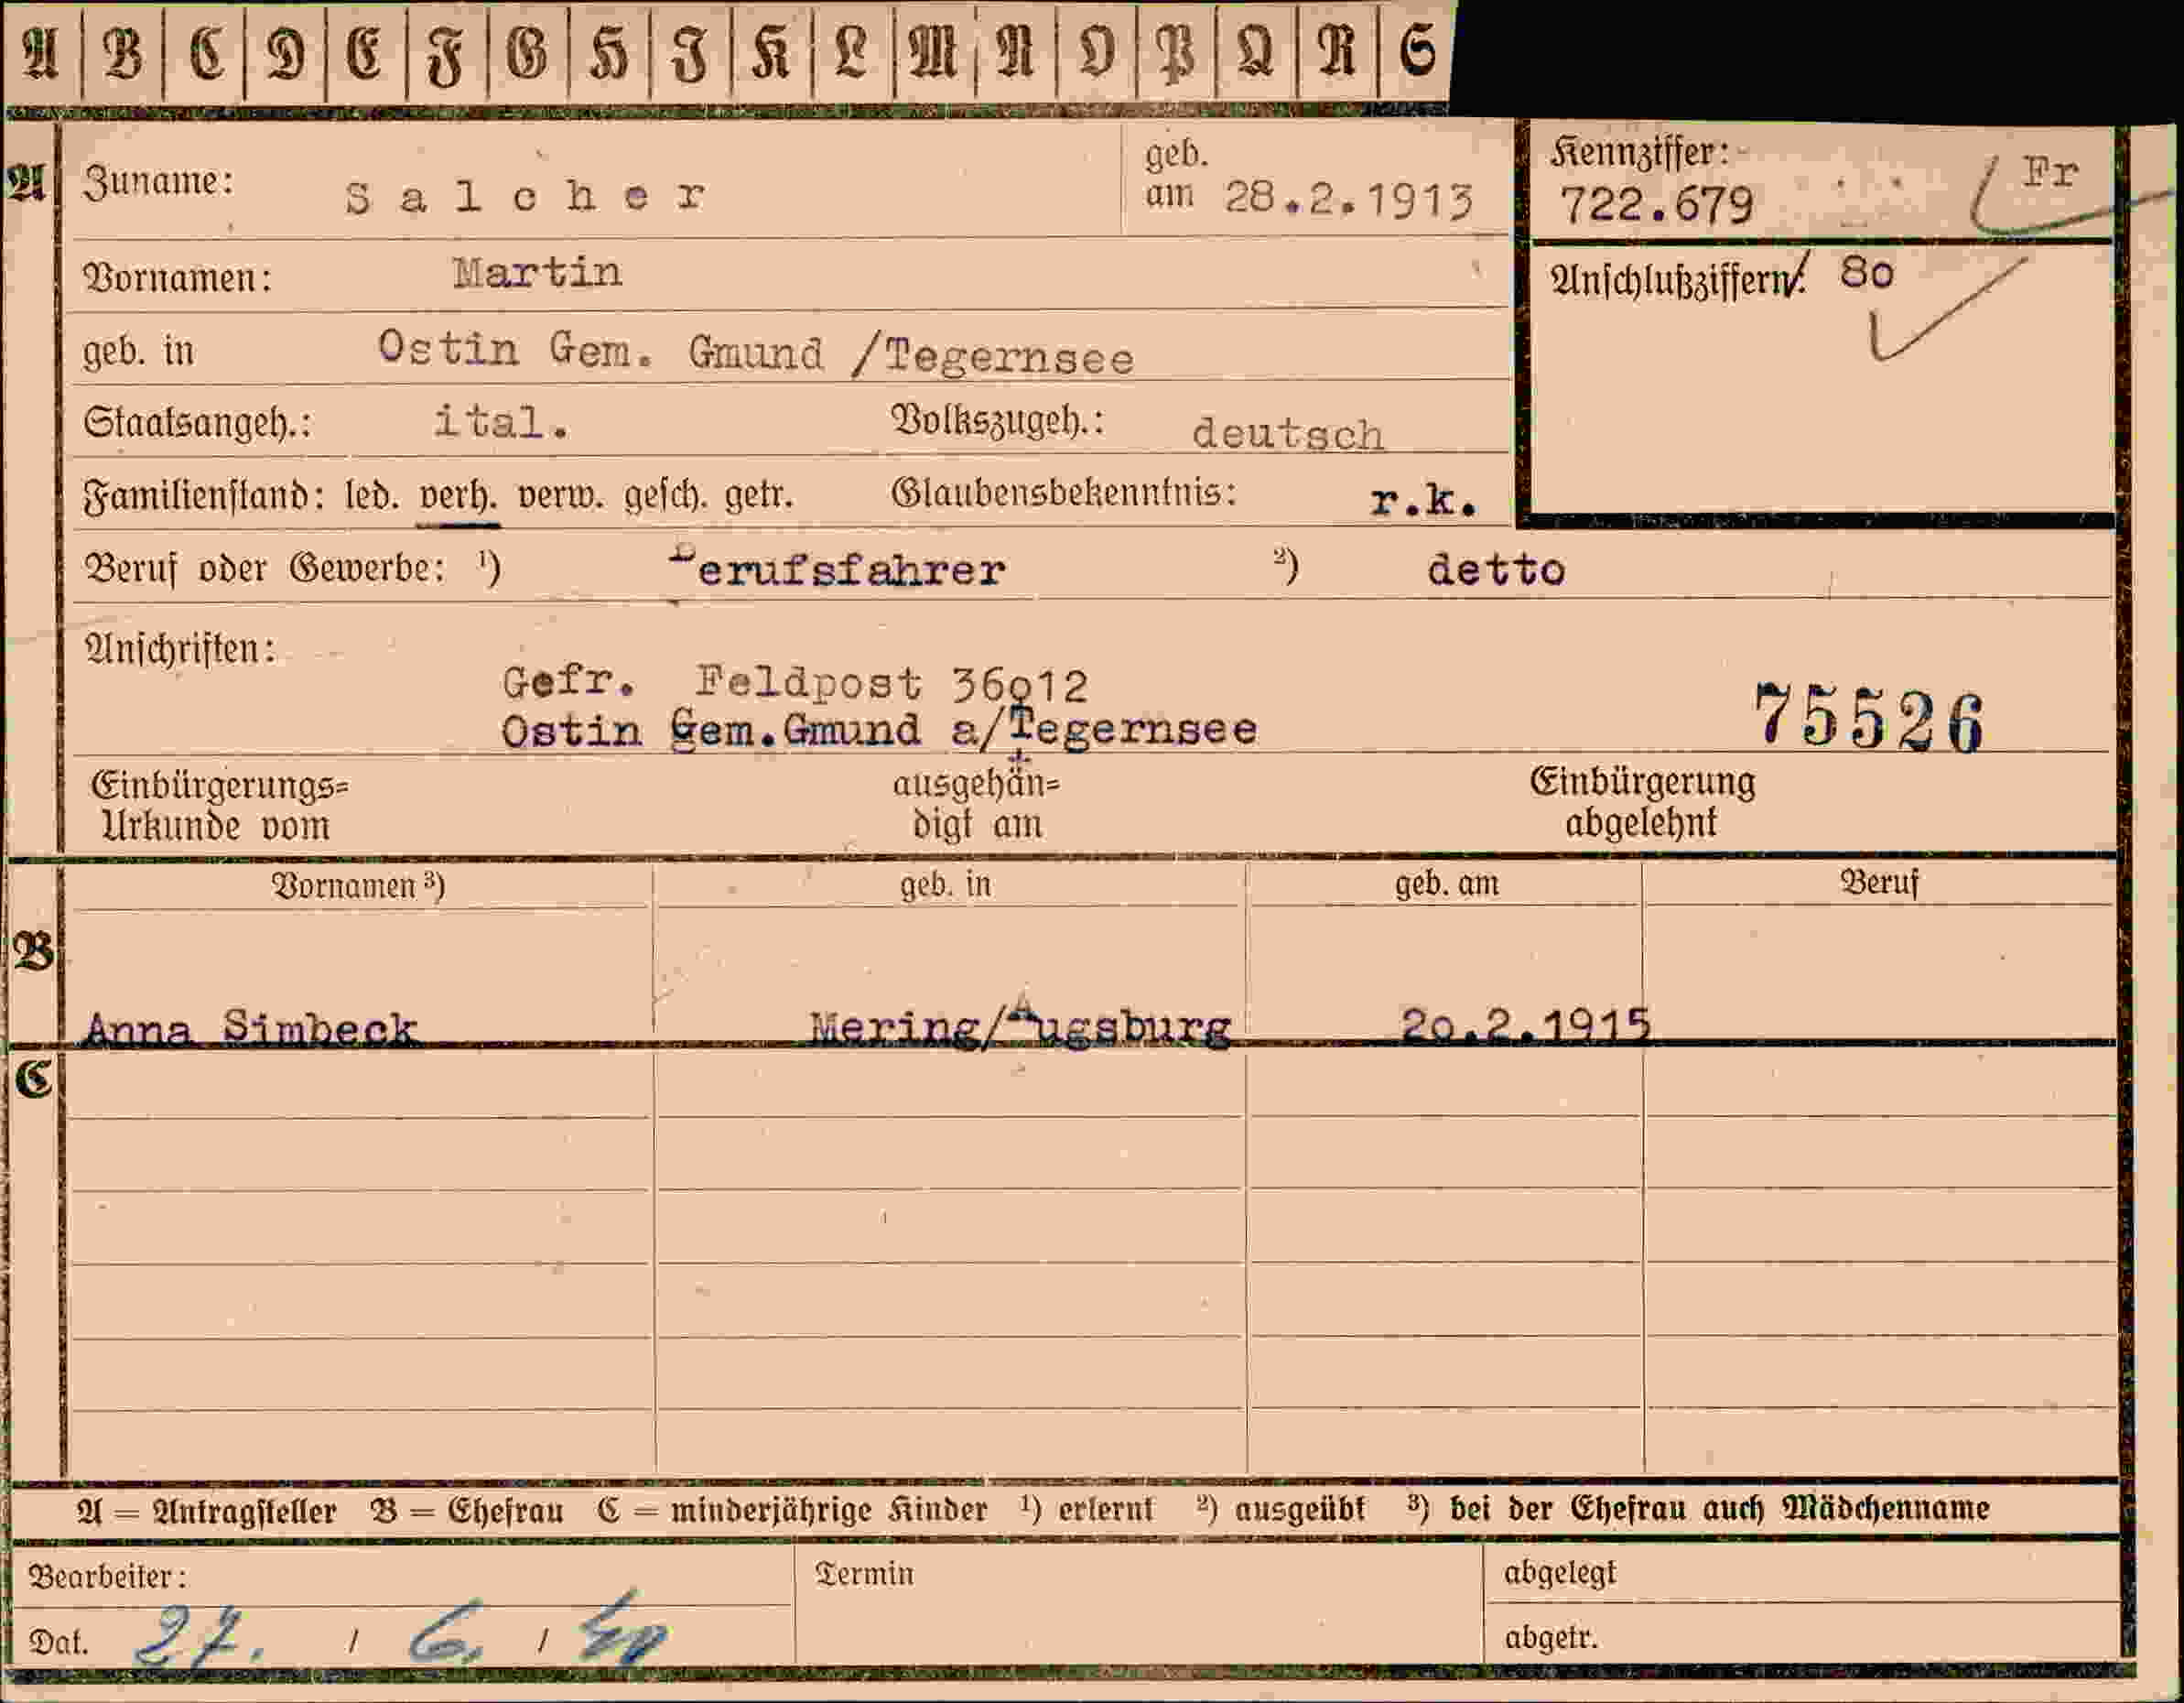 A B C D E F G H I K L M N O P Q R S
A Zuname: Salcher geb. am 28.2.1913 Kennziffer: 722.679 Fr
Vornamen: Martin Anschlußziffern/: 80
geb. in Ostin Gem. Gmund /Tegernsee
Staatsangeh.: ital. Volkszugeh.: deutsch
Familienstand: led. verh. verw. gesch. getr. Glaubensbekenntnis: r.k.
Beruf oder Gewerbe: ¹) Berufsfahrer ²) detto
Anschriften:
Gefr. Feldpost 36912
Ostin Gem.Gmund a/Tegernsee 75526
Einbürgerungs= ausgehän= Einbürgerung
Urkunde vom digt am abgelehnt
Vornamen ³) geb. in geb. am Beruf
B
Anna Simbeck Mering/Augsburg 20.2.1915
C
A = Antragsteller B = Ehefrau C = minderjährige Kinder ¹) erlernt ²) ausgeübt ³) bei der Ehefrau auch Mädchenname
Bearbeiter: Termin abgelegt
Dat. 27. / 6. / 40 abgetr.